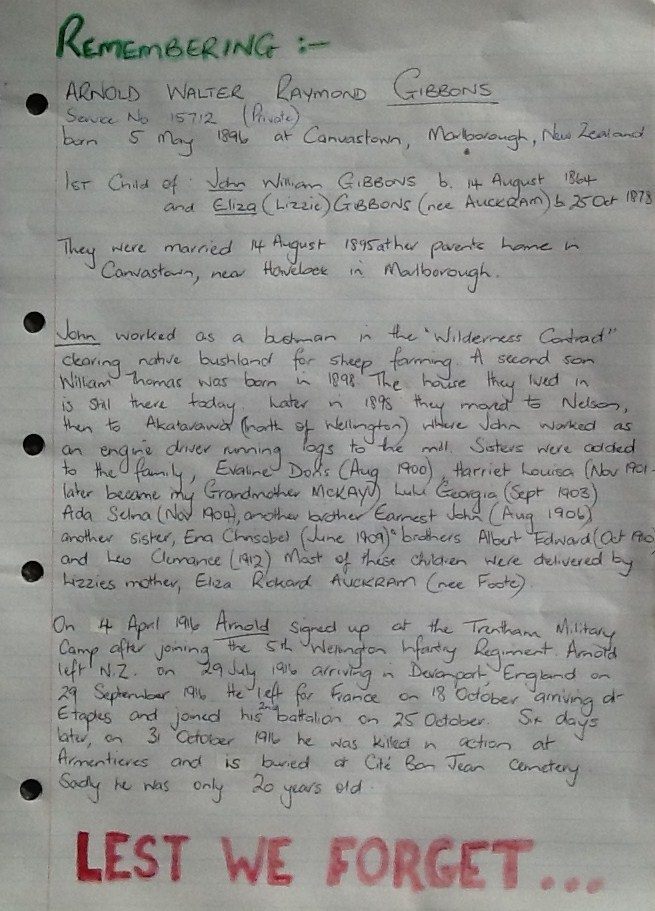 REMEMBERING :-
ARNOLD WALTER RAYMOND GIBBONS
Service No 15712 (Private)
born 5 May 1896 at Canvastown, Marlborough, New Zealand
1ST Child of John William GIBBONS b. 14 August 1864
and Eliza (Lizzie) GIBBONS (nee AUCKRAM) b 25 Oct 1878
They were married 14 August 1895 at her parents home in
Canvastown, near Havelock in Marlborough.
John worked as a bushman in the "Wilderness Contract"
clearing native bushland for sheep farming. A second son
William Thomas was born in 1898. The house they lived in
is still there today. Later in 1898 they moved to Nelson,
then to Akatarawa (north of Wellington) where John worked as
an engine driver running logs to the mill. Sisters were added
to the family, Evaline Doris (Aug 1900), Harriet Louisa (Nov 1901-
later became my Grandmother McKAY) Lulu Georgia (Sept 1903)
Ada Selna (Nov 1904), another brother Earnest John (Aug 1906)
another sister, Ena Chrisobel (June 1909) & brothers Albert Edward (Oct 1910)
and Leo Clemance (1912) Most of these children were delivered by
Lizzies mother, Eliza Rickard AUCKRAM (nee Foote).
On 4 April 1916 Arnold signed up at the Trentham Military
Camp after joining the 5th Wellington Infantry Regiment. Arnold
left N.Z. on 29 July 1916 arriving in Devonport, England on
29 September 1916. He left for France on 18 October arriving at
Etaples and joined his 2nd battalion on 25 October. Six days
later, on 31 October 1916 he was killed in action at
Armentieres and is buried at Cité Bon Jean cemetery.
Sadly he was only 20 years old.
LEST WE FORGET...